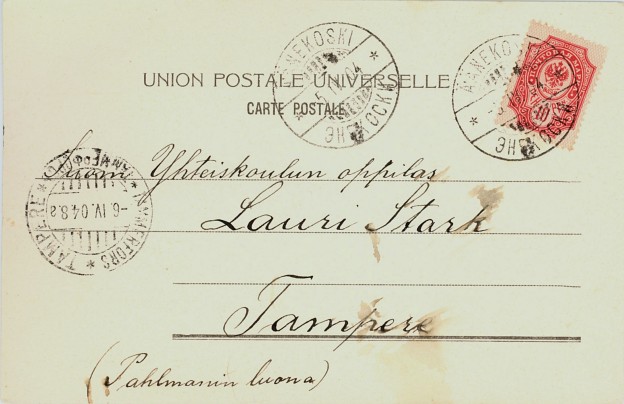 UNION POSTALE UNIVERSELLE
CARTE POSTALE
ÄÄNEKOSKI
ÄÄNEKOSKI
Yhteiskoulun oppilas
Lauri Stark
Tampere
(Pahlmanin luona)
TAMMERFORS * TAMPERE *
-6.IV.04.8.a